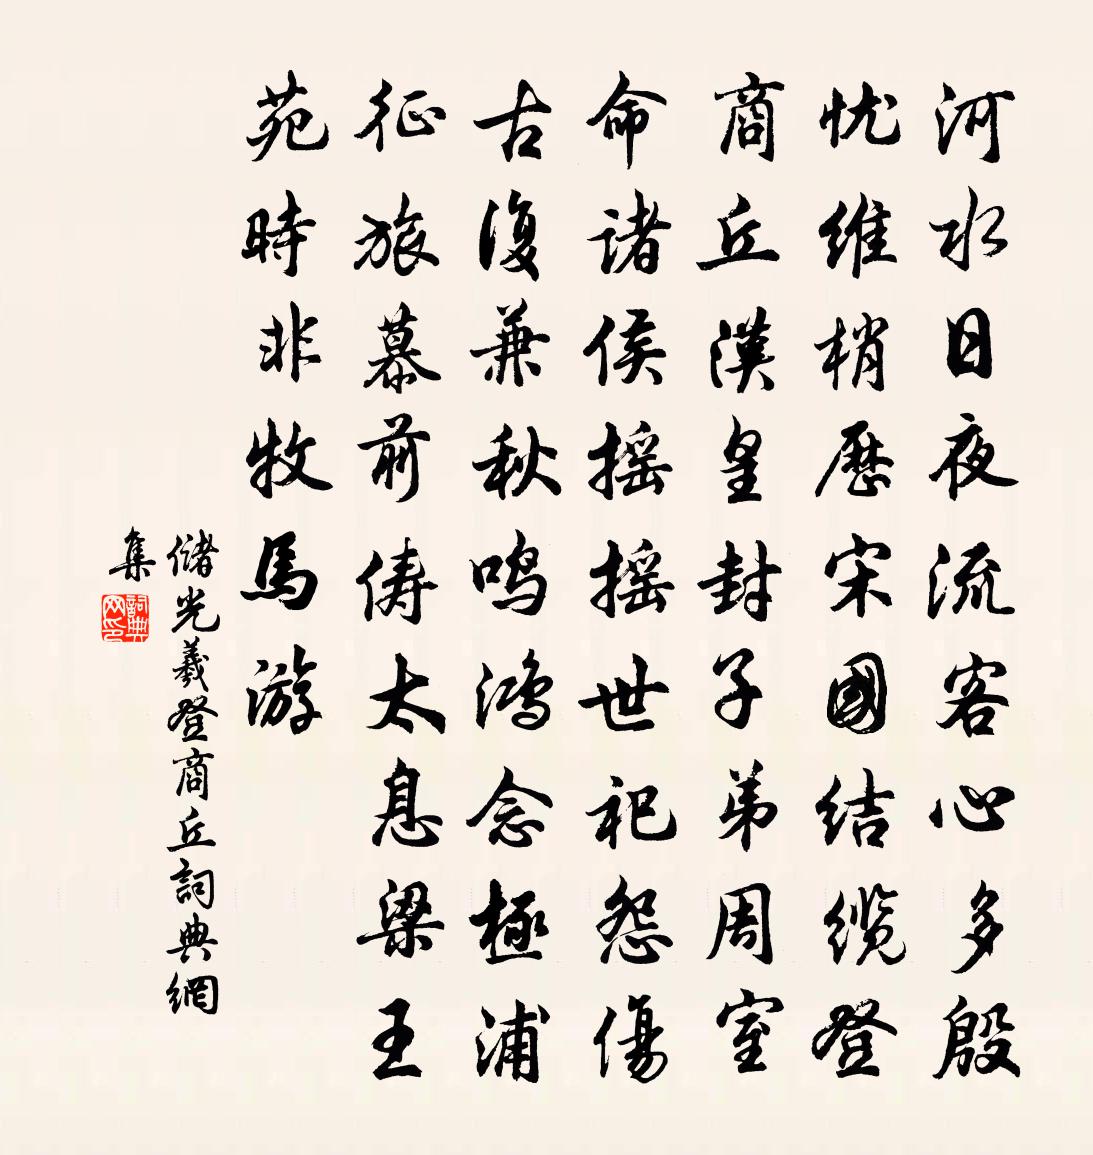 河水日夜流客心多殷
忧维梢历宋國结缆登
商丘漢皇封子弟周室
命诸侯摇摇世祀怨傷
古復兼秋鸣鸿念極浦
征旅慕前俦太息梁王
苑時非牧馬游
儲光羲登商丘詞典網
集
詞典网印